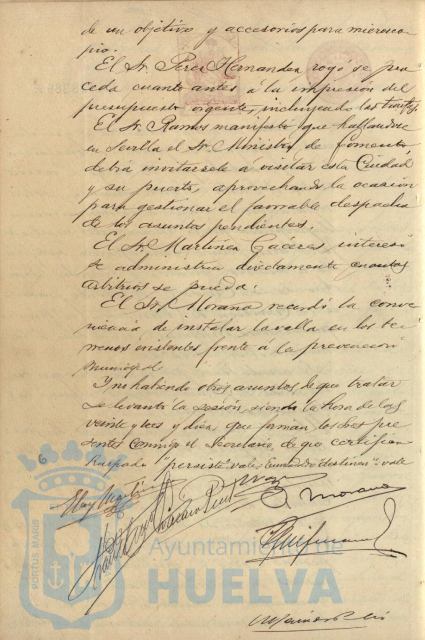 de un objetivo y accesorios para microsco
pio.
El Sr. Perez Hernandez rogó se pro
ceda cuanto antes á la impresión del
presupuesto vigente, incluyendo las tarifas.
El Sr. Ramos manifestó que hallandose
en Sevilla el Sr. Ministro de fomento
debia invitarsele á visitar esta Ciudad
y su puerto, aprovechando la ocasion
para gestionar el favorable despacho
de los asuntos pendientes.
El Sr. Martinez Caceres interesó
se administren directamente cuantos
arbitrios se pueda.
El Sr. Morano recordó la conve
niencia de instalar la valla en los te
rrenos existentes frente á la prevencion
municipal.
Y no habiendo otros asuntos de que tratar
se levantó la sesión, siendo la hora de las
veinte y tres y diez, que firman los Sres pre
sentes conmigo el Secretario de que certifico
Raspado "persiste" vale; Enmendado vale
6
Morano
PORTUS MARIS
Ayuntamiento de
HUELVA